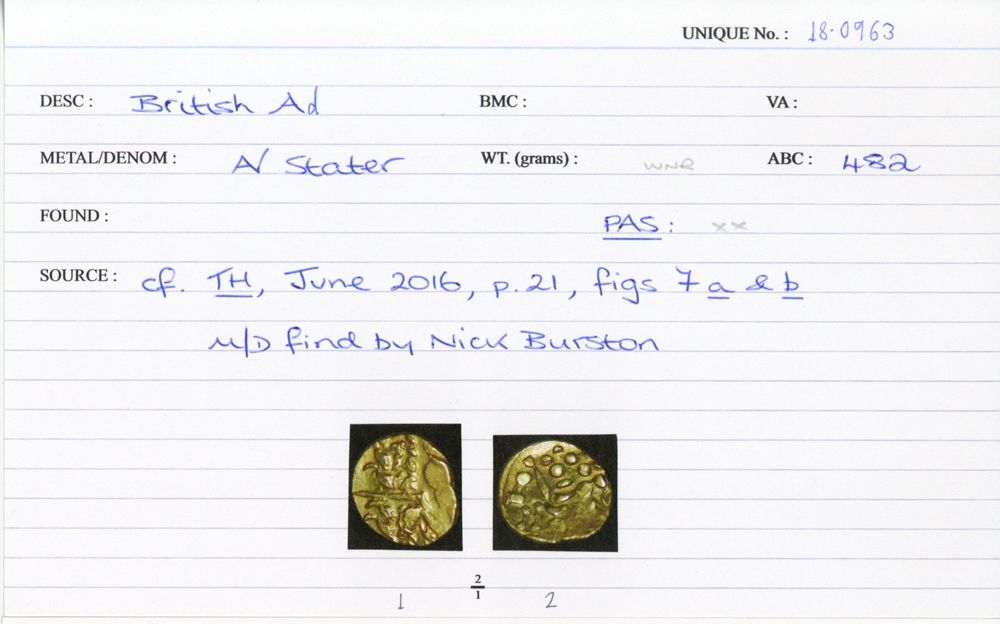 UNIQUE No. : 18-0963
DESC : British Ad BMC : VA :
METAL/DENOM : A/ Stater WT. (grams) : WNR ABC : 482
FOUND : PAS : xx
SOURCE : cf. TH, June 2016, p.21, figs 7a & b
M/D find by Nick Burston
2/1
1 2